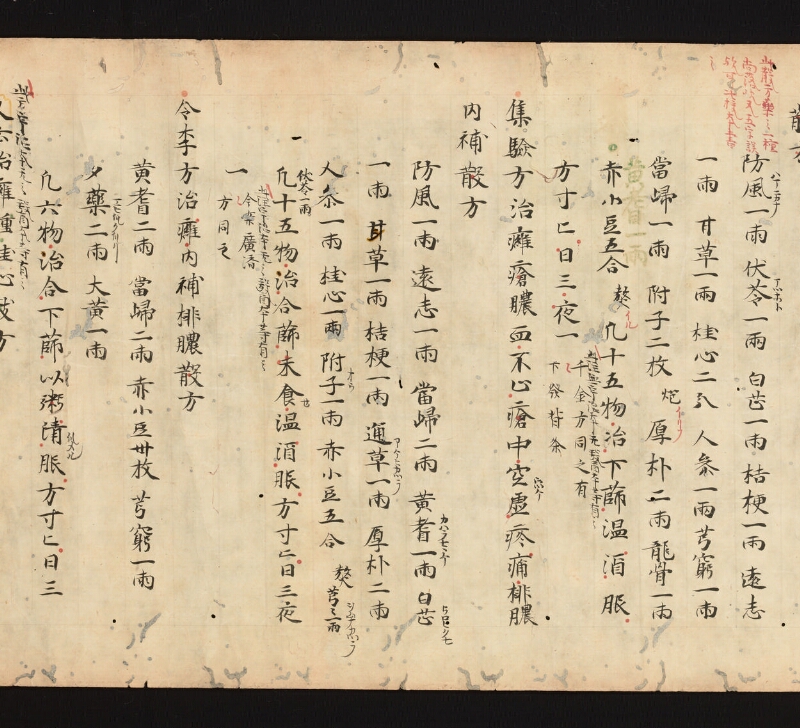 散方
防風一兩 伏苓一兩 白芷一兩 桔梗一兩 遠志
一兩 甘草一兩 桂心二分 人参一兩 芎窮一兩
當歸一兩 附子二枚 炮 厚朴二兩 龍骨一兩
黄耆一兩
赤小豆五合 熬 凡十五物冶下篩温酒服
方寸匕日三夜一 千金方同之有
下發背条
集驗方治癰瘡膿血不止瘡中空虚疼痛排膿
内補散方
防風一兩 遠志一兩 當歸二兩 黄耆一兩 白芷
一兩 甘草一兩 桔梗一兩 通草一兩 厚朴二兩
人参一兩 桂心一兩 附子一兩 赤小豆五合 熬 芎々一兩
伏苓一兩
凡十五物冶合篩未食温酒服方寸匕日三夜
一 今案廣済
方同之
令李方治癰内補排膿散方
黄耆二兩 當歸二兩 赤小豆卅枚 芎窮一兩
夕藥二兩 大黄一兩
凡六物冶合下篩以粥清服方寸匕日三
又云治癰腫桂心散方